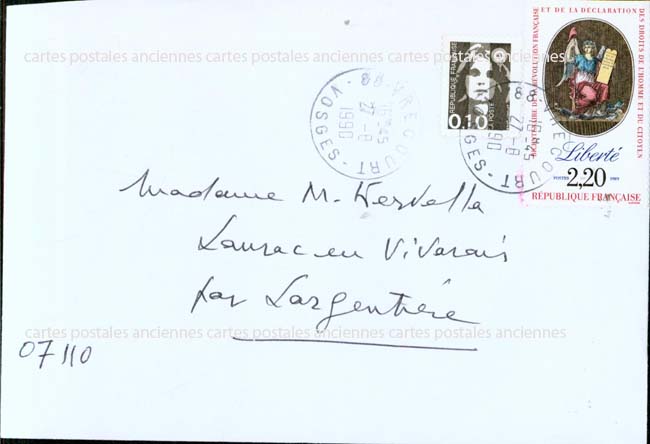 cartes postales anciennes cartes postales anciennes cartes postales anciennes cartes postales anciennes
RÉPUBLIQUE FRANÇAISE
LA POSTE
0,10
BICENTENAIRE DE LA RÉVOLUTION FRANÇAISE
ET DE LA DÉCLARATION
DES DROITS DE L'HOMME ET DU CITOYEN
Liberté
POSTES 2,20 1989
RÉPUBLIQUE FRANÇAISE
88 HARECOURT
16-45
27-8
1990
VOSGES
88 HARECOURT
16-45
27-8
1990
VOSGES
Madame M. Kervella
Laurac en Vivarais
par Largentière
cartes postales anciennes cartes postales anciennes cartes postales anciennes cartes postales anciennes
07110